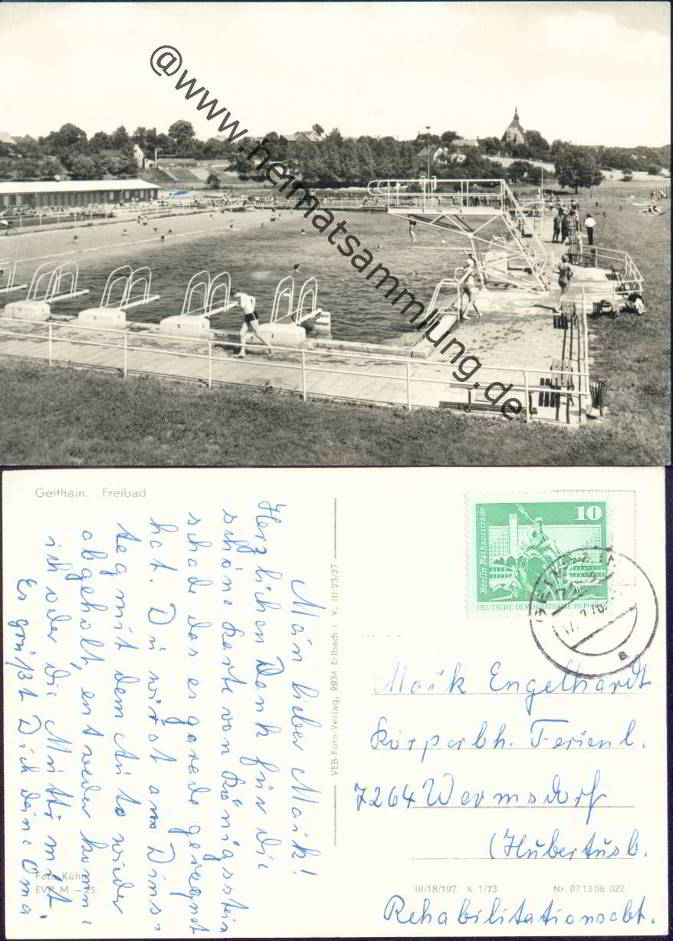 @www.heimatsammlung.de
Geithain. Freibad
Mein lieber Maik!
Herzlichen Dank für die
schöne Karte von Königsstein
schade das es gerade geregnet
hat. Du wirst am Diens-
tag mit dem Auto wieder
abgeholt, entweder komm
ich oder die Mutti mit.
Es grüßt Dich deine Oma
Foto-Kühn
EVP M –25
VEB Foto-Verlag, 9934 Erlbach i. V. III/23,27
10
Berlin, Rathausstraße
DEUTSCHE DEMOKRATISCHE REPUBLIK
a
Maik Engelhardt
Körperbh. Ferienl.
7264 Wermsdorf
(Hubertusb.
Rehabilitationsabt.
III/18/197 K 1/73
Nr. 07 13 06 022